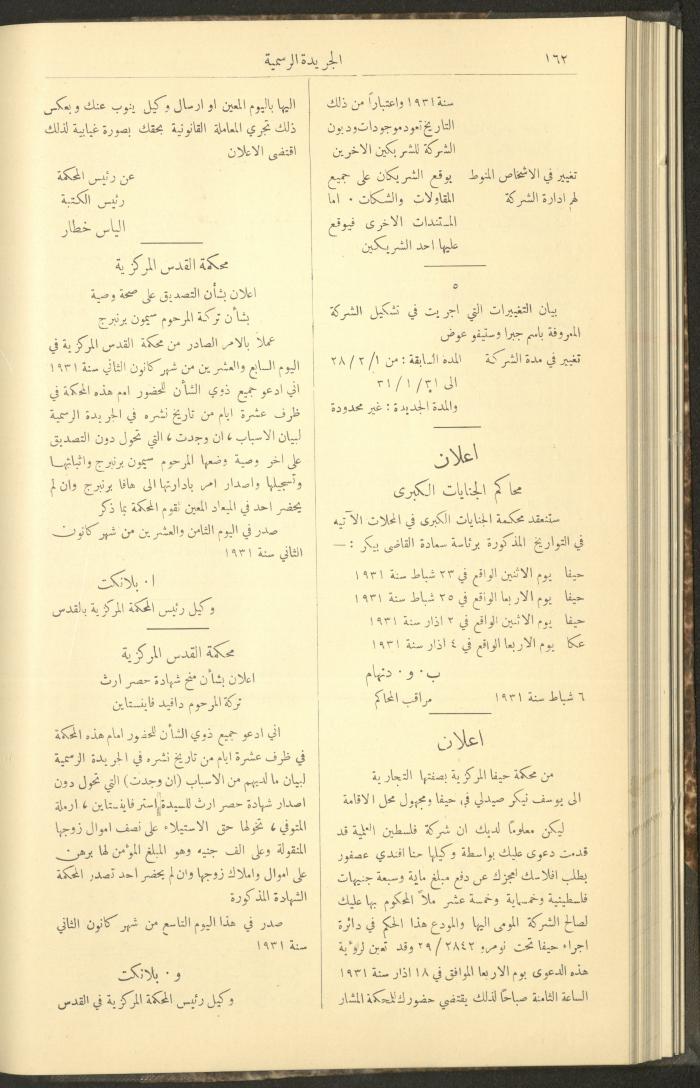 ١٦٢
الجريدة الرسمية
سنة ١٩٣١ واعتباراً من ذلك
التاريخ تعود موجودات وديون
الشركة للشريكين الاخرين
تغيير في الاشخاص المنوط يوقع الشريكان على جميع
لهم ادارة الشركة المقاولات والشكات ٠ اما
المستندات الاخرى فيوقع
عليها احد الشريكين
٥
بيان التغييرات التي اجريت في تشكيل الشركة
المعروفة باسم جبرا وستيفو عوض
تغيير في مدة الشركة المده السابقة : من ٢٨/٢/١
الى ٣١/١/٣١
والمدة الجديدة : غير محدودة
اعلان
محاكم الجنايات الكبرى
ستنعقد محكمة الجنايات الكبرى في المحلات الآتيه
في التواريخ المذكورة برئاسة سعادة القاضي بيكر : —
حيفا يوم الاثنين الواقع في ٢٣ شباط سنة ١٩٣١
حيفا يوم الاربعا الواقع في ٢٥ شباط سنة ١٩٣١
حيفا يوم الاثنين الواقع في ٢ اذار سنة ١٩٣١
عكا يوم الاربعا الواقع في ٤ اذار سنة ١٩٣١
ب ٠ و ٠ دتهام
٦ شباط سنة ١٩٣١ مراقب المحاكم
اعلان
من محكمة حيفا المركزية بصفتها التجارية
الى يوسف نيكر صيدلي في حيفا ومجهول محل الاقامة
ليكن معلوماً لديك ان شركة فلسطين العلمية قد
قدمت دعوى عليك بواسطة وكيلها حنا افندي عصفور
بطلب افلاسك لعجزك عن دفع مبلغ ماية وسبعة جنيهات
فلسطينية وخمسماية وخمسة عشر ملاً المحكوم بها عليك
لصالح الشركة المومى اليها والمودع هذا الحكم في دائرة
اجراء حيفا تحت نومرو ٢٩/٢٨٤٢ وقد تعين لرؤية
هذه الدعوى يوم الاربعا الموافق في ١٨ اذار سنة ١٩٣١
الساعة الثامنة صباحاً لذلك يقتضي حضورك للمحكمة المشار
اليها باليوم المعين او ارسال وكيل ينوب عنك وبعكس
ذلك تجري المعاملة القانونية بحقك بصورة غيابية لذلك
اقتضى الاعلان
عن رئيس المحكمة
رئيس الكتبة
الياس خطار
محكمة القدس المركزية
اعلان بشأن التصديق على صحة وصية
بشأن تركة المرحوم سيمون برنبرج
عملاً بالامر الصادر من محكمة القدس المركزية في
اليوم السابع والعشرين من شهر كانون الثاني سنة ١٩٣١
اني ادعو جميع ذوي الشأن للحضور امم هذه المحكمة في
ظرف عشرة ايام من تاريخ نشره في الجريدة الرسمية
لبيان الاسباب ، ان وجدت ، التي تحول دون التصديق
على اخر وصية وضعها المرحوم سيمون برنبرج واثباتها
وتسجيلها واصدار امر بادارتها الى هافا برنبرج وان لم
يحضر احد في الميعاد المعين تقوم المحكمة بما ذكر
صدر في اليوم الثامن والعشرين من شهر كانون
الثاني سنة ١٩٣١
ا ٠ بلانكت
وكيل رئيس المحكمة المركزية بالقدس
محكمة القدس المركزية
اعلان بشأن منح شهادة حصر ارث
تركة المرحوم دافيد فاينستاين
اني ادعو جميع ذوي الشأن للحضور امام هذه المحكمة
في ظرف عشرة ايام من تاريخ نشره في الجريدة الرسمية
لبيان ما لديهم من الاسباب (ان وجدت) التي تحول دون
اصدار شهادة حصر ارث للسيدة استر فاينستاين ، ارملة
المتوفي ، تخولها حق الاستيلاء على نصف اموال زوجها
المنقولة وعلى الف جنيه وهو المبلغ المؤمن لها برهن
على اموال واملاك زوجها وان لم يحضر احد تصدر المحكمة
الشهادة المذكورة
صدر في هذا اليوم التاسع من شهر كانون الثاني
سنة ١٩٣١
و ٠ بلانكت
وكيل رئيس المحكمة المركزية في القدس